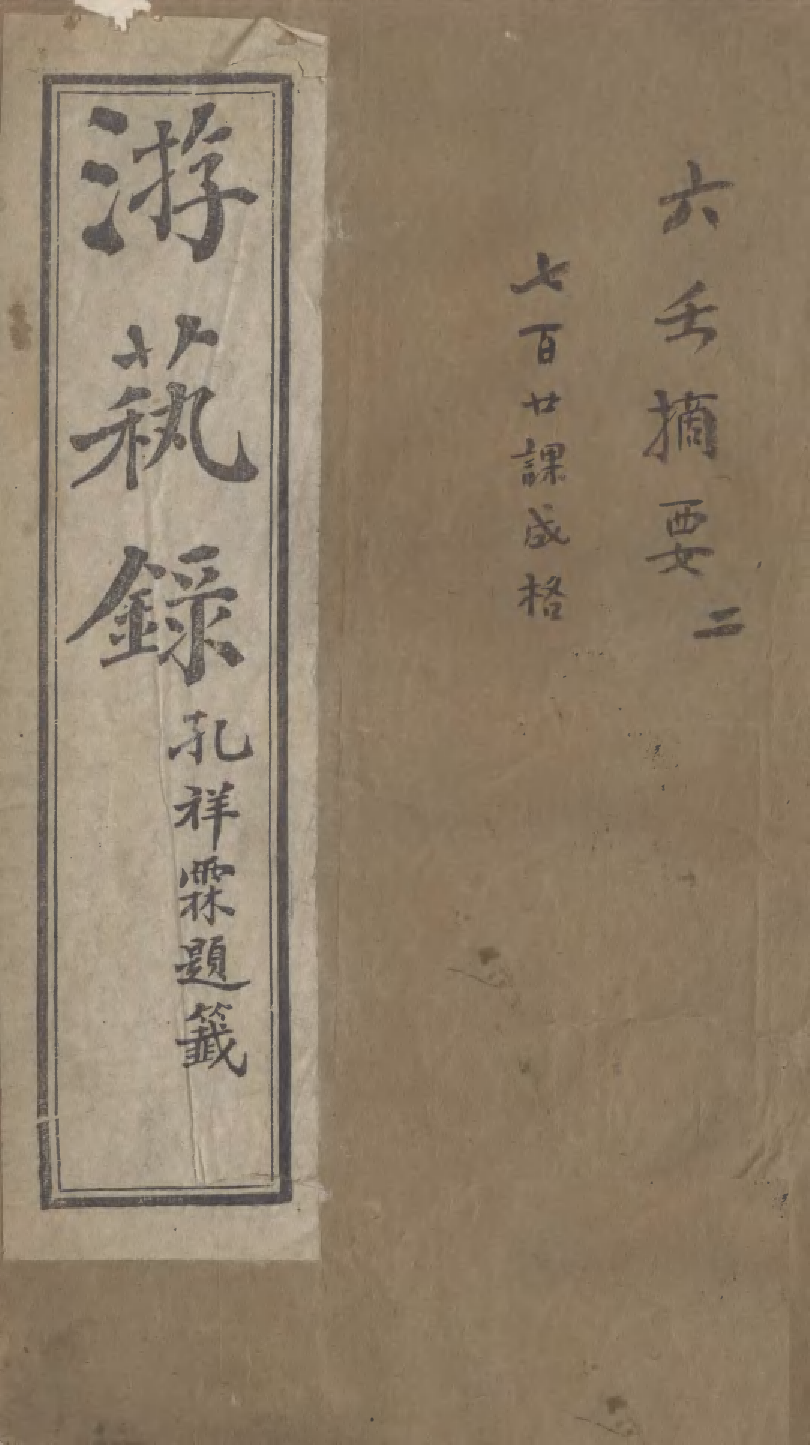 六壬摘要 二
七百廿課成格
游蓺錄
孔祥霖題籤